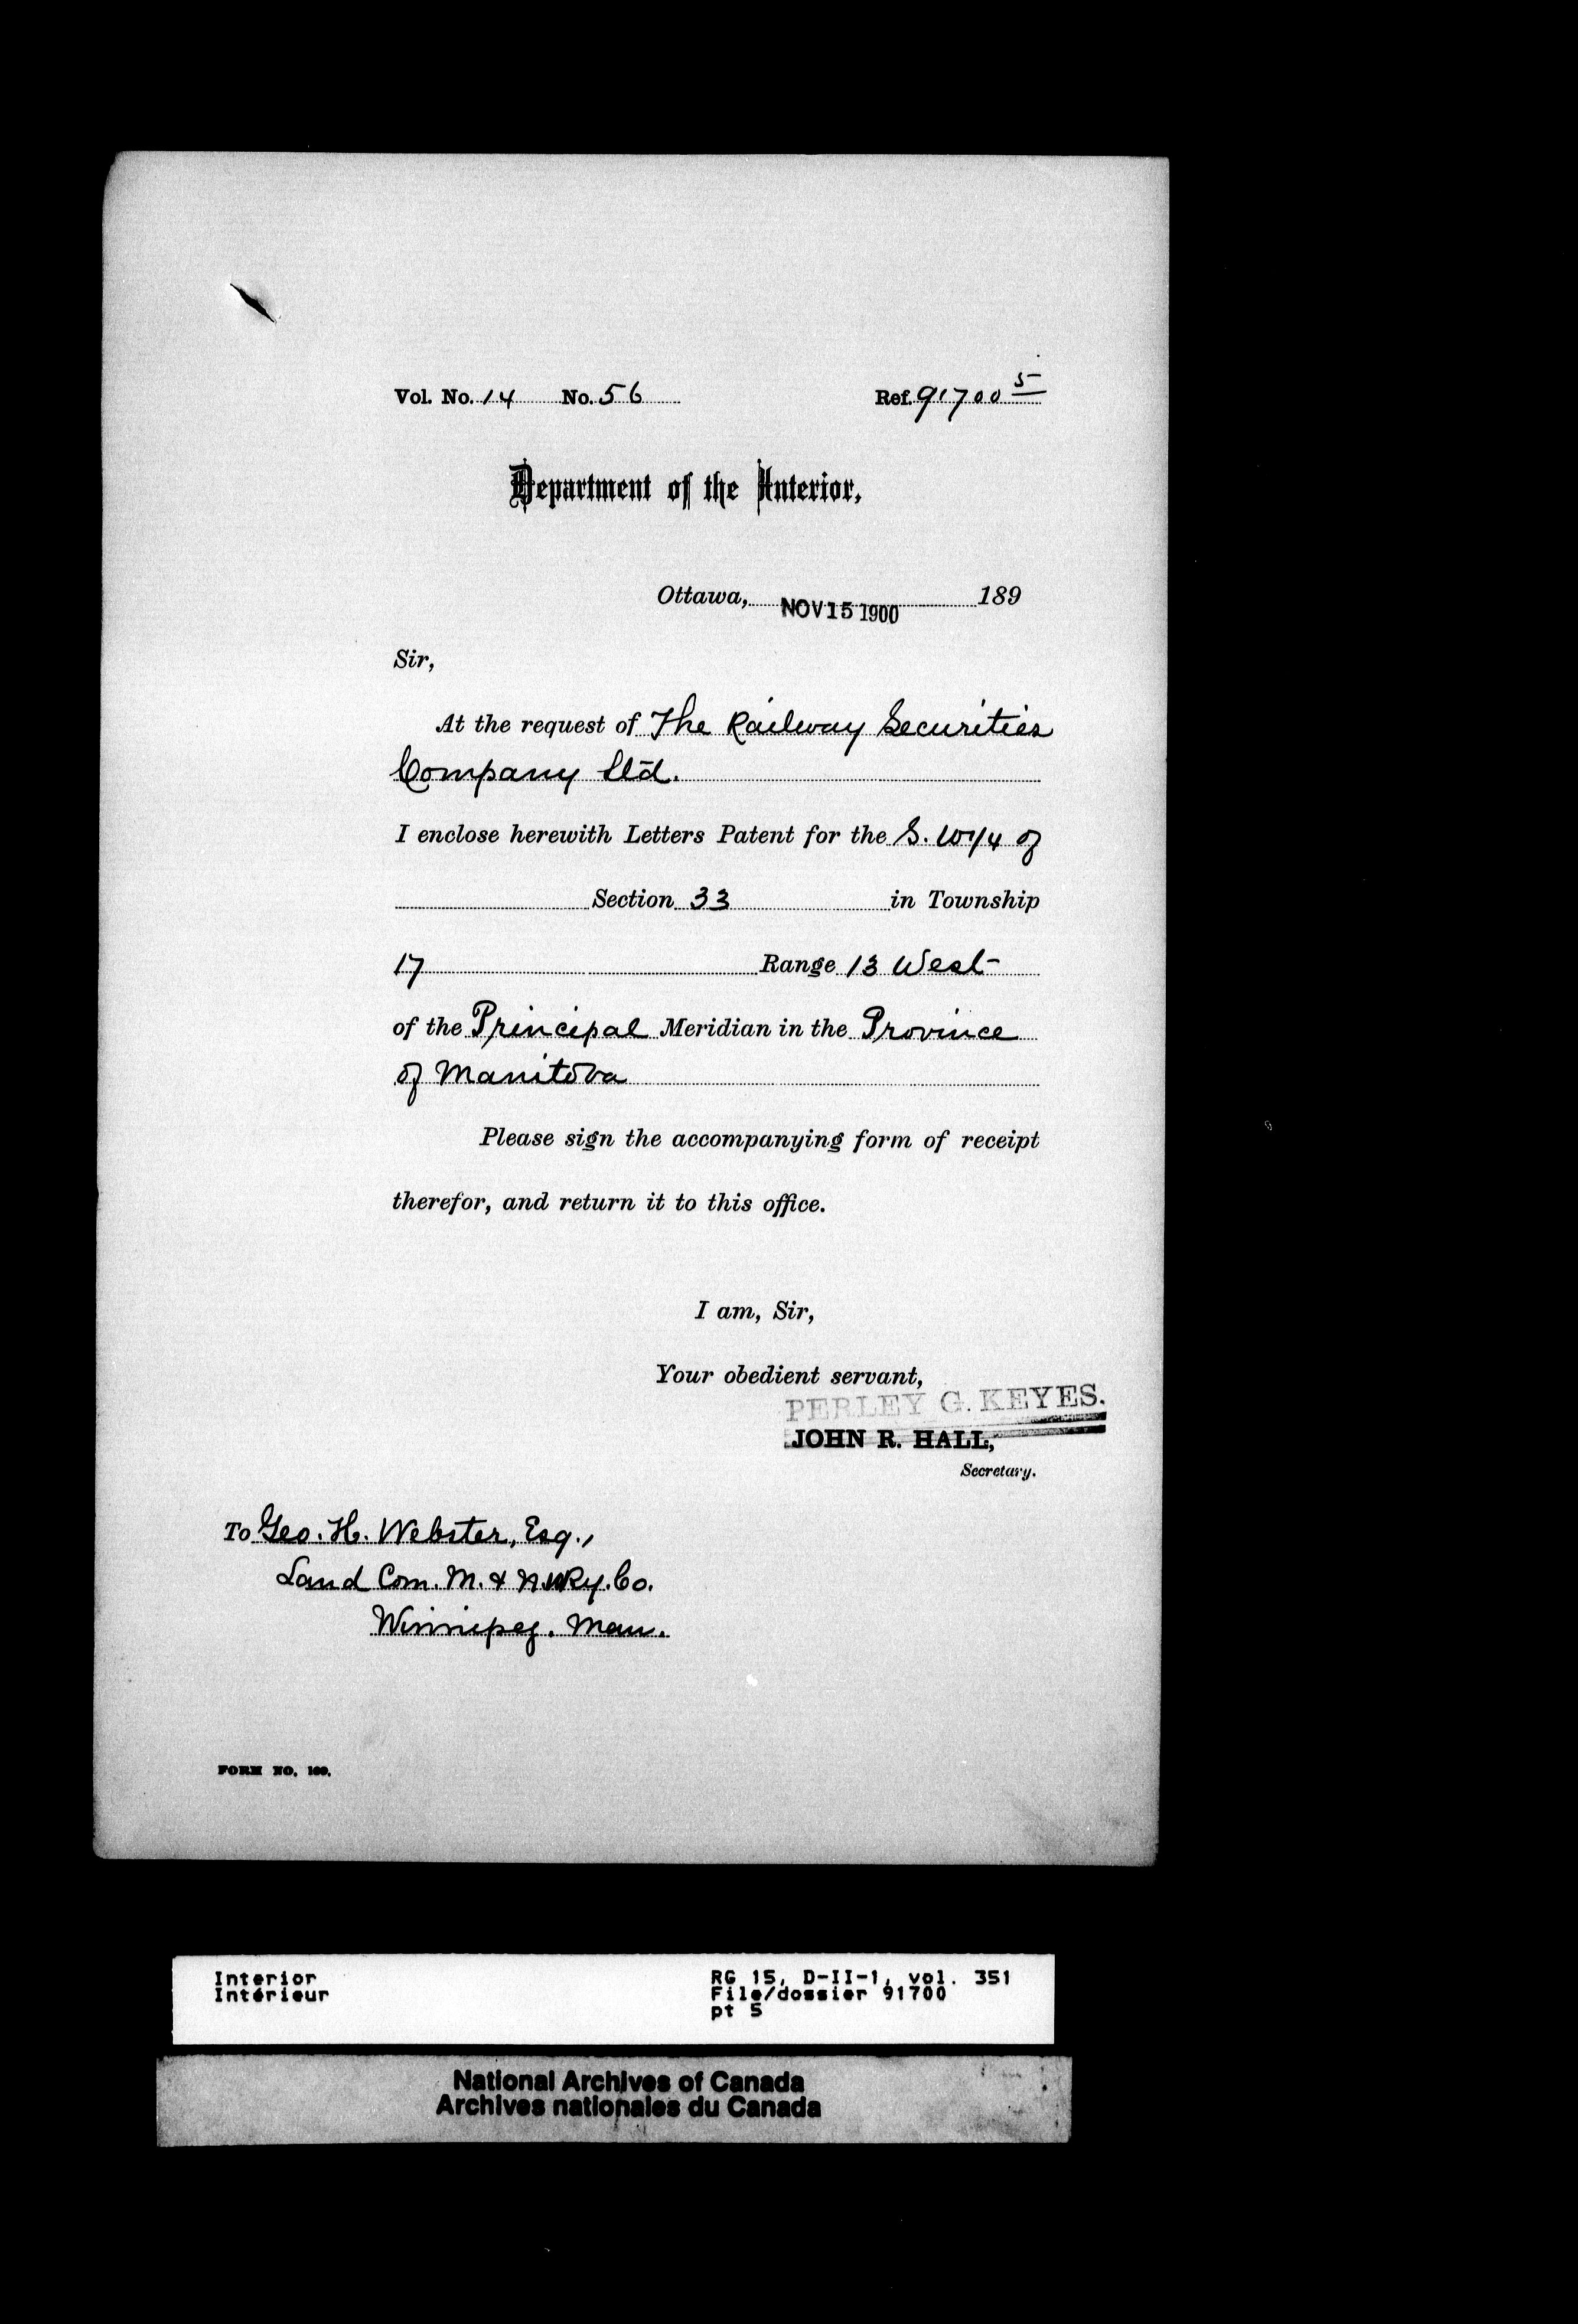 Vol. No. 14 No. 56 Ref. 91700 5
Department of the Interior,
Ottawa, NOV 15 1900 189
Sir,
At the request of The Railway Securities
Company Ltd.
I enclose herewith Letters Patent for the S. W 1/4 of
Section 33 in Township
17 Range 13 West
of the Principal Meridian in the Province
of Manitoba
Please sign the accompanying form of receipt
therefor, and return it to this office.
I am, Sir,
Your obedient servant,
PERLEY G. KEYES.
JOHN R. HALL,
Secretary.
To Geo. H. Webster, Esq.,
Land Com. M. & N.W.Ry. Co.
Winnipeg. Man.
FORM NO. 109.
Interior RG 15, D-II-1, vol. 351
Intérieur File/dossier 91700
pt 5
National Archives of Canada
Archives nationales du Canada